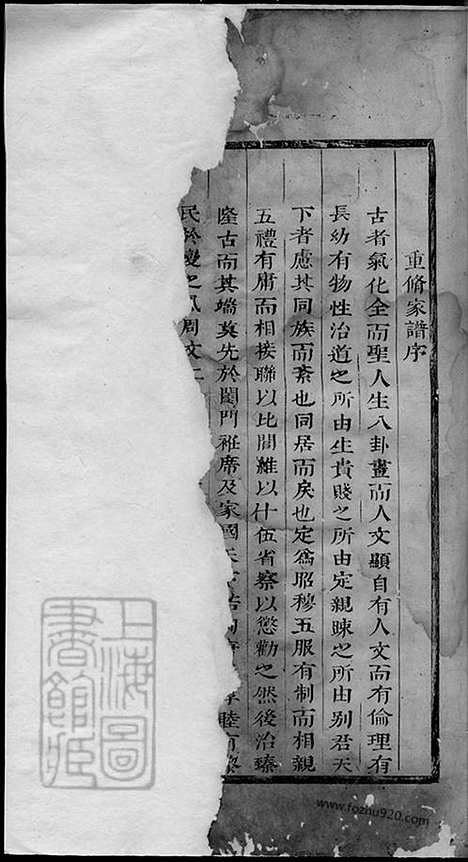 重脩家譜序
古者氣化全而聖人生八卦畫而人文顯自有人文而有倫理有
長幼有物性治道之所由生貴賤之所由定親疎之所由别君天
下者慮其同族而紊也同居而戾也定爲昭穆五服有制而相親
五禮有庸而相接聯以比閭維以什伍省察以懲勸之然後治臻
隆古而其端莫先於閨門袵席及家國天
睦
民於變之風周文
上海圖書館藏
www.fozhu920.com